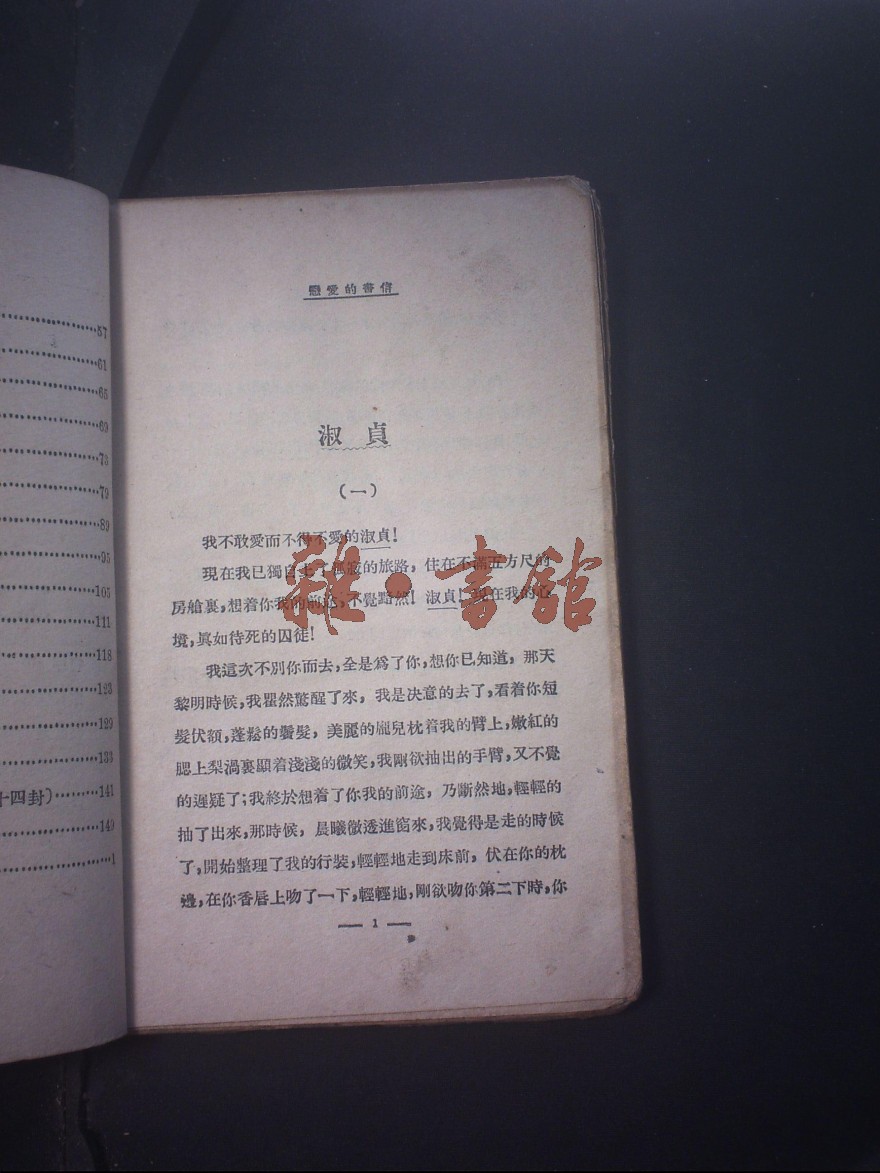 57
61
65
69
73
79
89
95
105
111
118
123
129
133
十四封)……141
149
1
戀愛的書信
淑貞
(一)
我不敢愛而不得不愛的淑貞!
現在我已獨自上了 的旅路,住在不滿五方尺的
房艙裏,想着你我的前途,不覺黯然!淑貞!現在我的心
境,眞如待死的囚徒!
我這次不別你而去,全是爲了你,想你已知道,那天
黎明時候,我瞿然驚醒了來,我是決意的去了,看着你短
髮伏額,蓬鬆的鬢髮,美麗的龐兒枕着我的臂上,嫩紅的
腮上梨渦裏顯着淺淺的微笑,我剛欲抽出的手臂,又不覺
的遲疑了;我終於想着了你我的前途,乃斷然地,輕輕的
抽了出來,那時候,晨曦微透進窗來,我覺得是走的時候
了,開始整理了我的行裝,輕輕地走到床前,伏在你的枕
邊,在你香唇上吻了一下,輕輕地,剛欲吻你第二下時,你
— 1 —
雜·書館